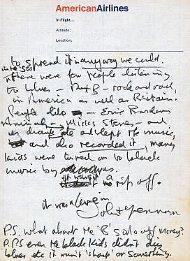 AmericanAirlines
In Flight...
Altitude;
Location;
to spread it any way we could.
in the 50s
there were few people listening
to blues – R + B – rock and roll,
in America as well as Britain.
People like – Eric Burdon
Micks Stones – and
us drank ate and slept the music,
and also recorded it, many
kids were turned on to black
music by us.
it wasn't a rip off.
it was love in
John Lennon
P.S. what about the 'B' side of money?
P.P.S even the black kids didn't dig
blues etc it wasn't 'sharp' or something.